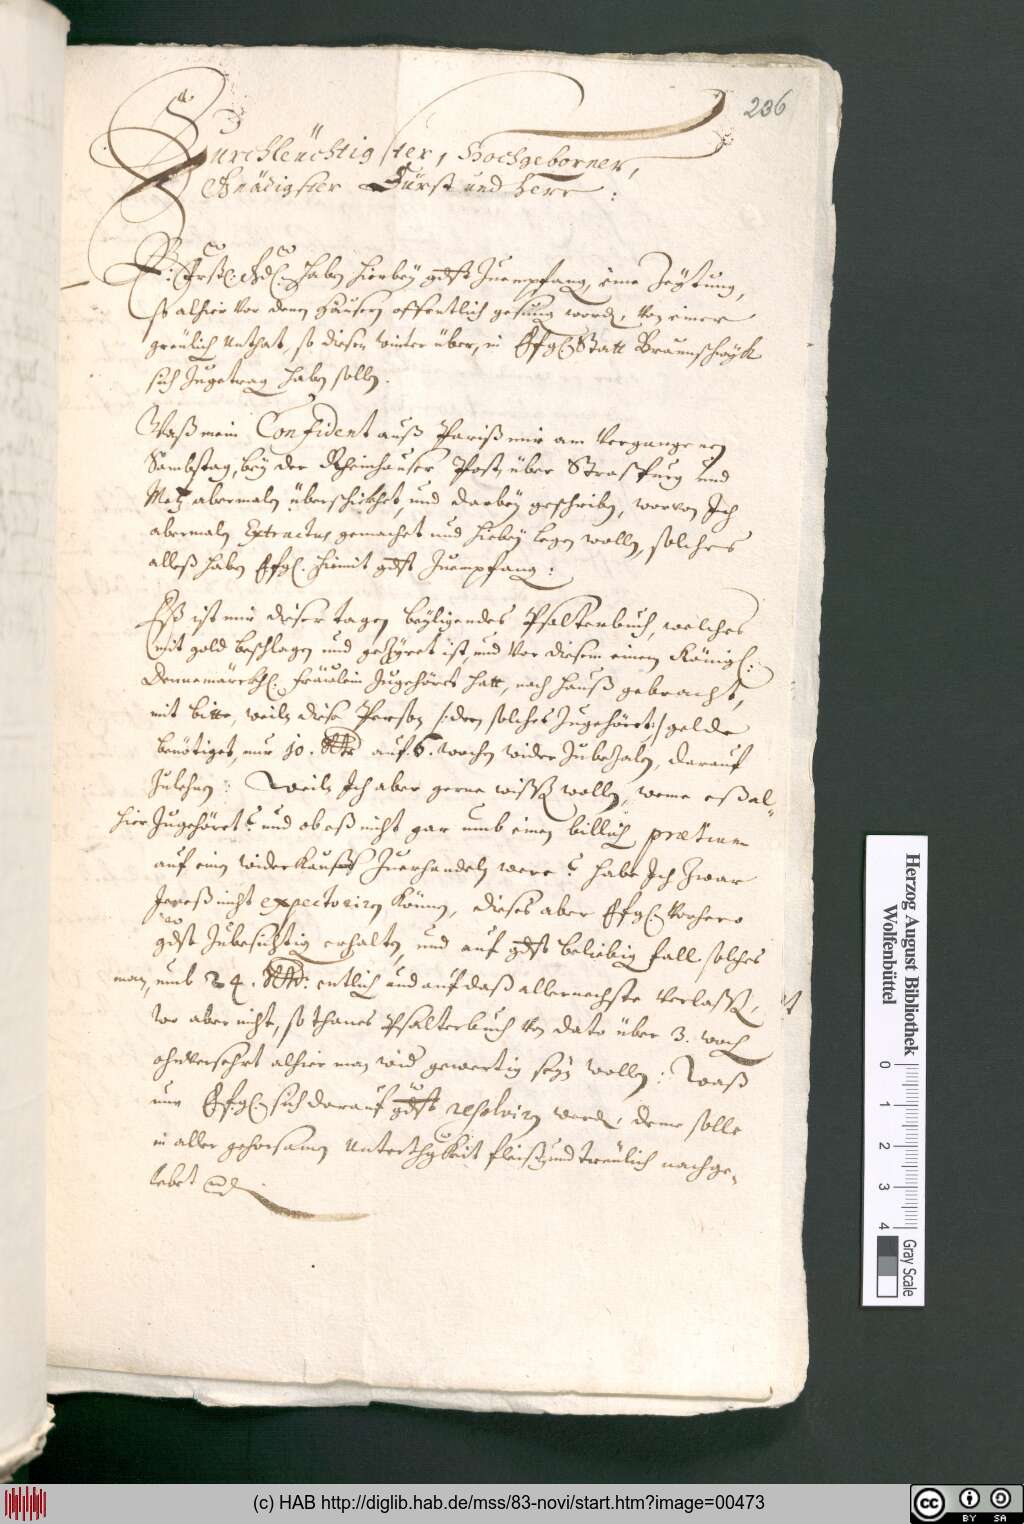 236
Durchleüchtigster, Hochgeborner,
Gnädigster Fürst und Herr:
E: Frstl: Gd: haben hierbey gdst Zuempfang, eine Zeytung,
so alhier vor denen häusern offentlich gesung word, von einer
greülich Unthat, so diesen winter über, in Effgl. Statt Braunschwÿk
sich Zugetrag haben solln.
Waß mein Confident auß Pariß mir am Vergangenen
Sambstag, beÿ der Rheinhauser Post, über Strasburg und
Metz abermaln überschickhet, und darbeÿ geschriben, worvon Ich
abermaln Extractus gemachet und hiebeÿ legen wolln, solches
alleß haben Effgl. hiemit gdst Zuempfang:
Eß ist mir dieser tagen beÿligendes Psalterbuch, welches
mit gold beschlagen und gezÿret ist, und vor diesem einem Königl:
Dennemärckhl: fräwlein Zugehöret hatt, nach hauß gebracht,
mit bitte, weiln diese Person /:dern solches Zugehöret:/ gelde
benötiget, nur 10. Rthr auf 6. wochen wider Zubezaln, darauf
Zulehnen: Weiln Ich aber gerne wissen wolln, weme eß al-
hier Zugehöret? und ob eß nicht gar umb einen billich prætium
auf einen widerkauff Zuerhandeln were? habe Ich Zwar
Jereß nicht expectoriren können, dieses aber Effgl. vorhero
gdst Zubesichtig erhalten, und auf gdst beliebig fall solches
man, umb 24. Rthr: entlich und auf daß allernechste verlasse,
Wo aber nicht, so thanes Psalterbuch von dato über 3. woch
ohnversehrt alhier man wid gewertig seÿn wollen: Waß
nun Effgl. sich darauf gdst resolviren werd, deme solle
in aller gehorsamen Unterthgkeit fleiß und trewlich nachge-
lebet
Herzog August Bibliothek
Wolfenbüttel
0
1
2
3
4
Gray Scale
(c) HAB http://diglib.hab.de/mss/83-novi/start.htm?image=00473
cc BY SA